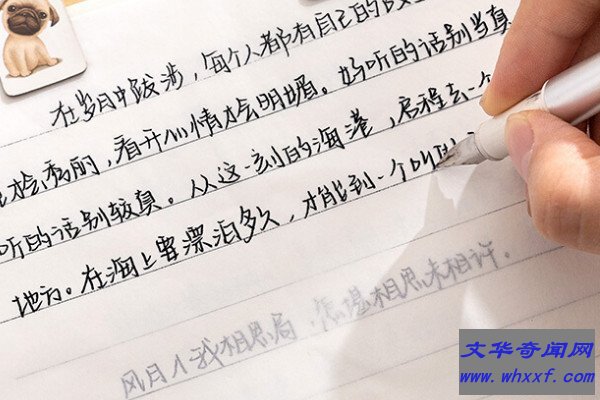 在岁月中跋涉，每个人都有自己的故
秀丽，看开心情才会明媚。好听的话别当真
听的话别较真。从这一刻的海港，启程去一个
地方。在海上要漂泊多久，才能到一个叫
风月入我相思局，怎堪相思未相许。
文华奇闻网
www.whxxf.com